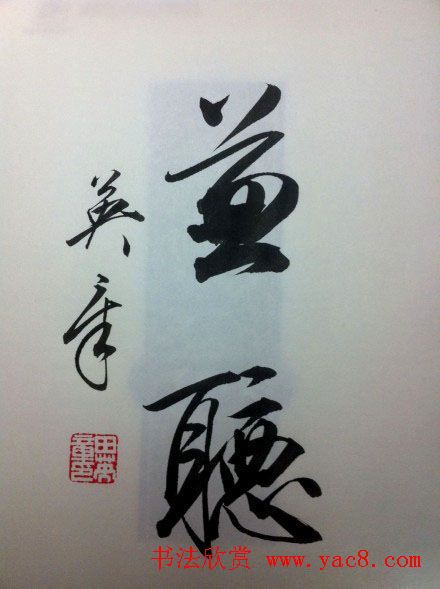 兼聽
英章
田英章印
书法欣赏 www.yac8.com